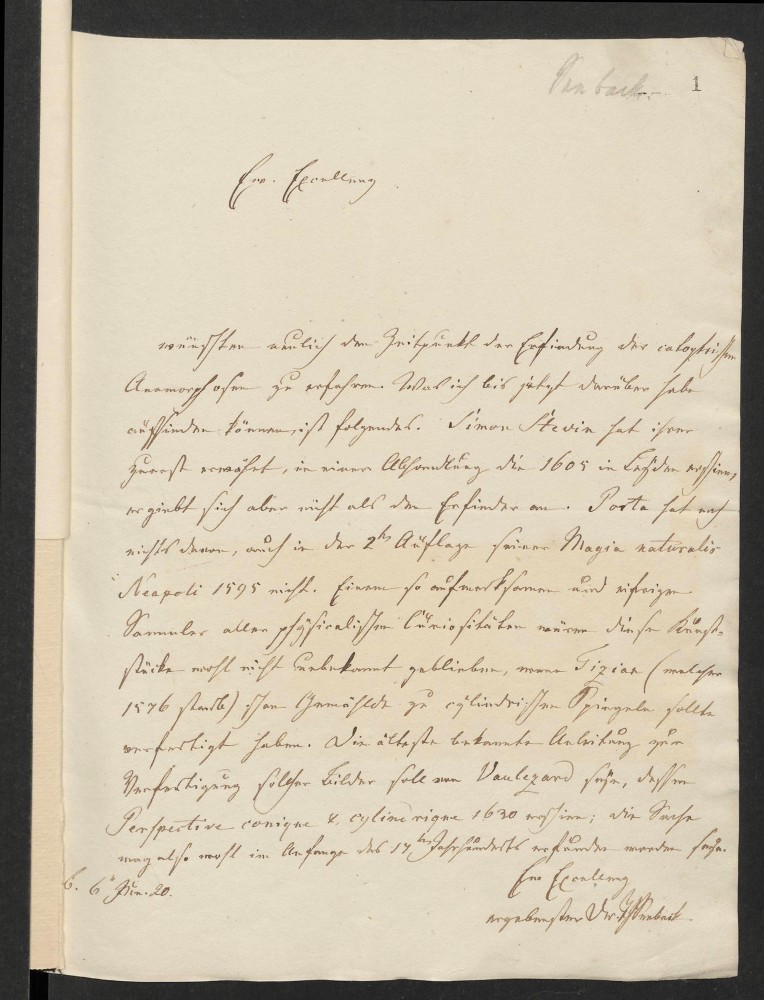 1
Ew. Excellenz
wünschten neulich den Zeitpunkt der Erfindung der catoptrischen
Anamorphosen zu erfahren. Was ich bis jetzt darüber habe
auffinden können, ist folgendes. Simon Stevin hat ihrer
zuerst erwähnt, in einer Abhandlung die 1605 in Leyden erschien,
er giebt sich aber nicht als den Erfinder an. Porta hat noch
nichts davon, auch in der 2ten Auflage seiner Magia naturalis
Neapoli 1595 nicht. Einem so aufmerksamen und eifrigen
Sammler aller physicalischen Curiositäten wären diese Kunst-
stücke wohl nicht unbekannt geblieben, wenn Tizian (welcher
1576 starb) schon Gemählde zu cylindrischen Spiegeln sollte
verfertigt haben. Die älteste bekannte Anleitung zur
Verfertigung solcher Bilder soll von Vaulezard seyn, dessen
Perspective conique & cylindrique 1630 erschien; die Sache
mag also wohl im Anfange des 17ten Jahrhunderts erfunden worden seyn.
Ew Excellenz
6 Jun. 20.
ergebenster Dr.